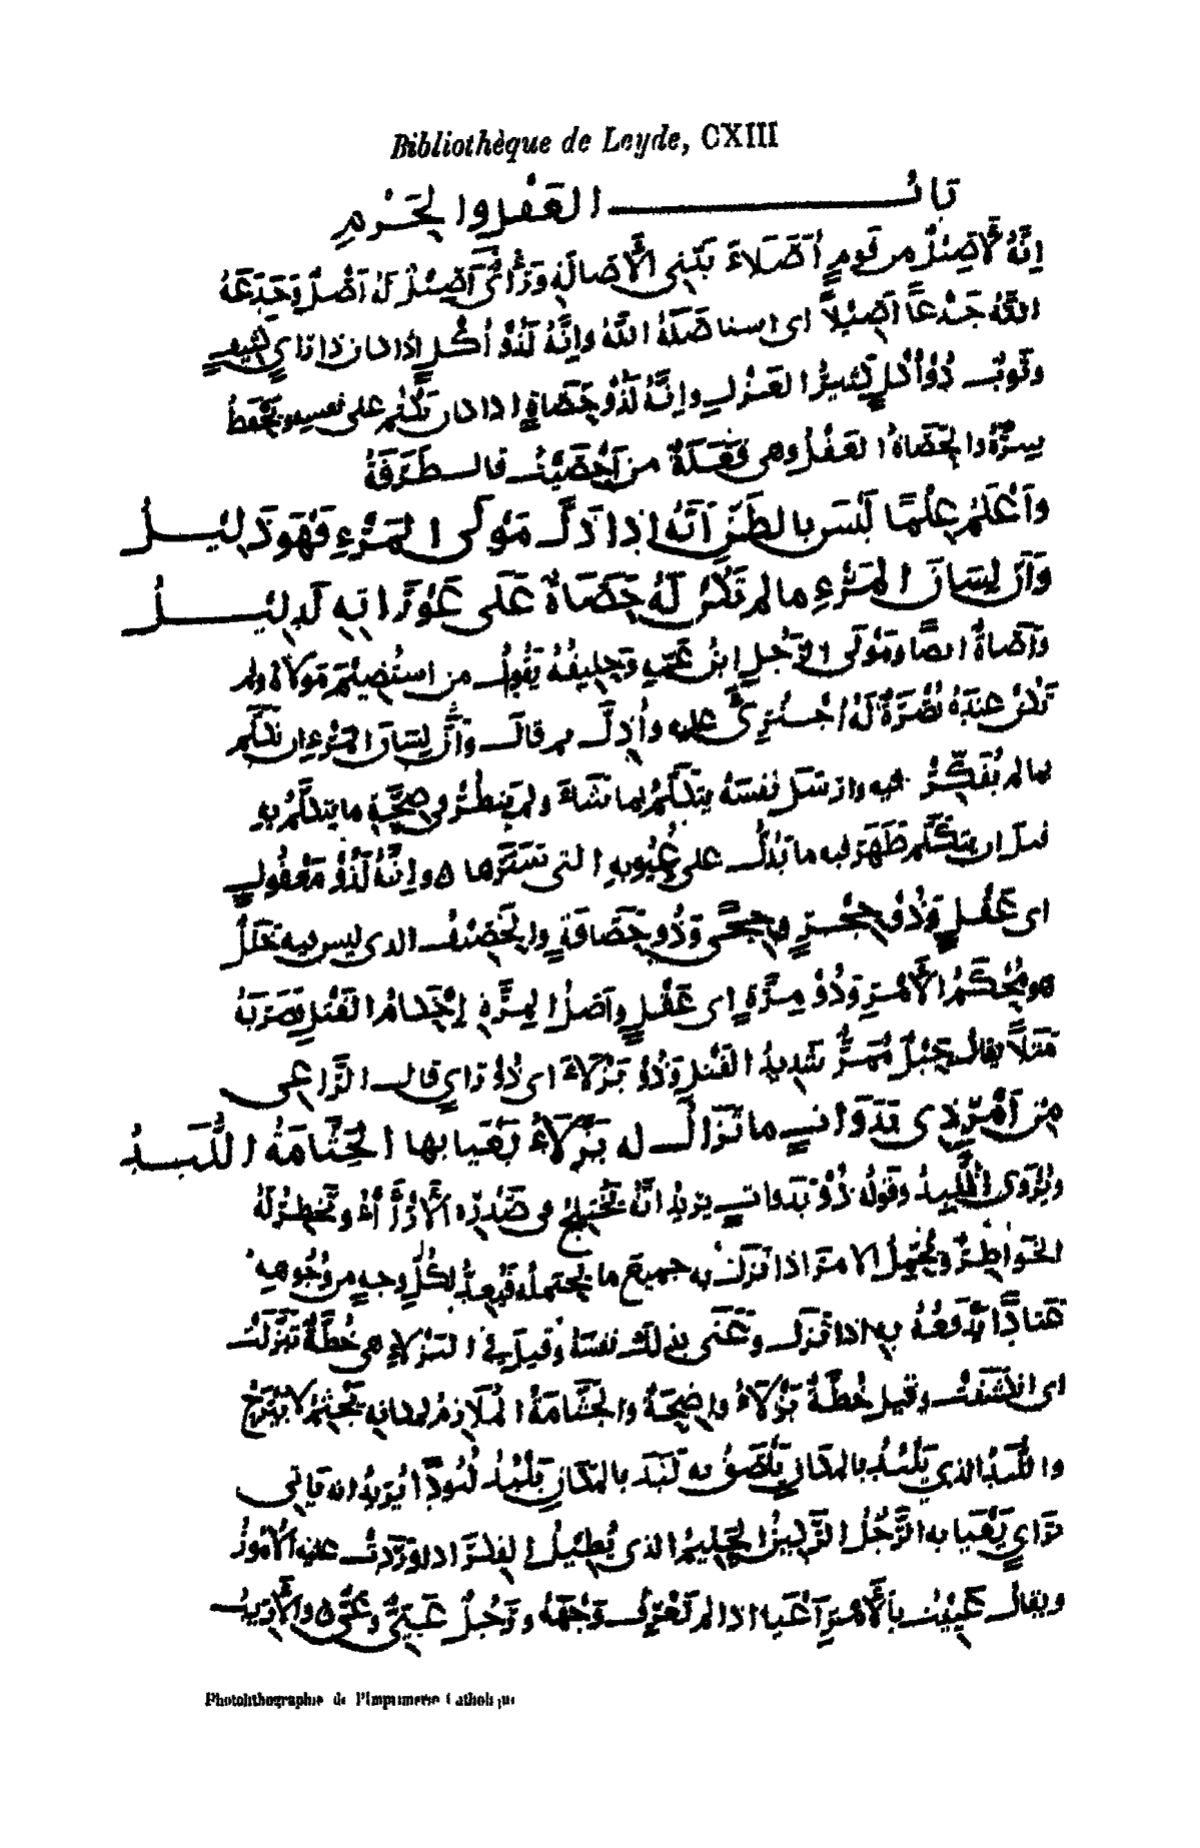 Bibliothèque de Leyde, CXIII
بَابُ العَقْلِ والحَزْمِ
إنَّهُ لَأَصِيلٌ من قومٍ أُصَلاءَ بَيِّنِي الأَصَالَةِ وَرَأْيٌ أَصِيلٌ لَهُ أَصْلٌ وَجَدَعَهُ
اللّٰهُ جَدْعًا أَصِيلًا اى استأصَلَهُ اللّٰهُ وإنَّهُ لَذُو أُكْلٍ إذا كان ذا رَايٍ
وثَوْبٌ ذُو أُكْلٍ كَثِيرُ الغَزْلِ وإنَّهُ لَذُو حَصَاةٍ اذا كان يَكْتُمُ على نفسِهِ ويَحْفَظُ
سِرَّهُ والحَصَاةُ العَقْلُ وهى فَعَلَةٌ من أَحْصَيْتُ قال طَرَفَةُ
وأَعْلَمُ عِلْمًا لَيْسَ بالظَنِّ أَنَّهُ إذا ذَلَّ مَوْلَى المَرْءِ فَهْوَ ذَلِيلُ
وَأَنَّ لِسَانَ المَرْءِ ما لم تَكُنْ لَهُ حَصَاةٌ عَلَى عَوْرَاتِهِ لَدَلِيلُ
وأَصَاةٌ ايضًا ومَوْلَى الرَّجُلِ ابنُ عَمِّهِ وحَلِيفُهُ يَقُولُ من اسْتُضِيمَ مَوْلَاهُ ولم
تَكُنْ عِنْدَهُ نُصْرَةٌ لَهُ اجْتُرِئَ عليه وأُذِلَّ ثم قالَ وأَنَّ لِسَانَ المَرْءِ ان تَكَلَّمَ
بما لم يُفَكِّرْ فيه وارسَلَ نَفْسَهُ يتَكَلَّمُ بما شَاءَ ولم يَنظُرْ فى صِحَّةِ ما يتكلَّمُ به
قبلَ ان يتَكَلَّمَ ظَهَرَ فيه ما يَدُلُّ على عُيُوبِهِ التى تَسَتَّرَها ه وإنَّهُ لَذُو مَعْقُولٍ
اى عَقْلٍ وَذُو حِجْرٍ وحِجًى وَذُو حَصَافَةٍ والحَصِيفُ الذى ليس فيه خَلَلٌ
هو مُحْكَمُ الأَمْرِ وَذُو مِرَّةٍ اى عَقْلٍ وأَصْلُ المِرَّةِ إحْكَامُ الفَتْلِ فضَرَبَهُ
مَثَلًا يقال حَبْلٌ مُمَرٌّ شَدِيدُ الفَتْلِ وَذُو بَزْلَاءَ اى ذُو رَايٍ قال الرَّاعِى
مِن أَمْرِ ذِى بَدَوَاتٍ ما تَزَالُ له بَزْلَاءُ يَعْيَا بها الجَثَّامَةُ اللُّبَدُ
ويُرْوَى اللَّبِدُ وقولُهُ ذُو بَدَواتٍ يريدُ أنَّهُ يَخْتَلِجُ فى صَدْرِهِ الآرَاءُ وتَخْطِرُ لَهُ
الخَوَاطِرُ ويُحَيِّلُ الامرَ اذا نَزَلَتْ به جميعَ ما يحتملُه فيُعِدُّ لِكُلِّ وجهٍ من وُجُوهِهِ
عَتَادًا يَدْفَعُهُ به اذا نَزَلَ وعَنَى بذلك نفسَهُ وقيلَ فى البَزْلَاءِ هى خُطَّةٌ تَبَزَّلَتْ
اى انْشَقَّتْ وقيل خُطَّةٌ بَزْلَاءُ واضِحَةٌ والجَثَّامَةُ المُلَازِمُ لمكانِهِ يَجْثِمُ لا يَبْرَحُ
واللُّبَدُ الذى يَلْبُدُ بالمكانِ يَلْصَقُ به لَبَدَ بالمكانِ يَلْبُدُ لُبُودًا يُرِيدُ انه يَاتِى
بِرَايٍ يَعْيَا به الرَّجُلُ الرَّكِينُ الحَلِيمُ الذى يُطِيلُ الفِكْرَ اذا وَرَدَتْ عليه الأُمُورُ
ويقال عَيِيتُ بالأَمْرِ أَعْيَا اذا لم تَعْرِفْ وَجْهَهُ ورَجُلٌ عَيِىٌّ وعَىٌّ ه والأَرِيبُ
Photolithographie de l'Imprimerie Catholique